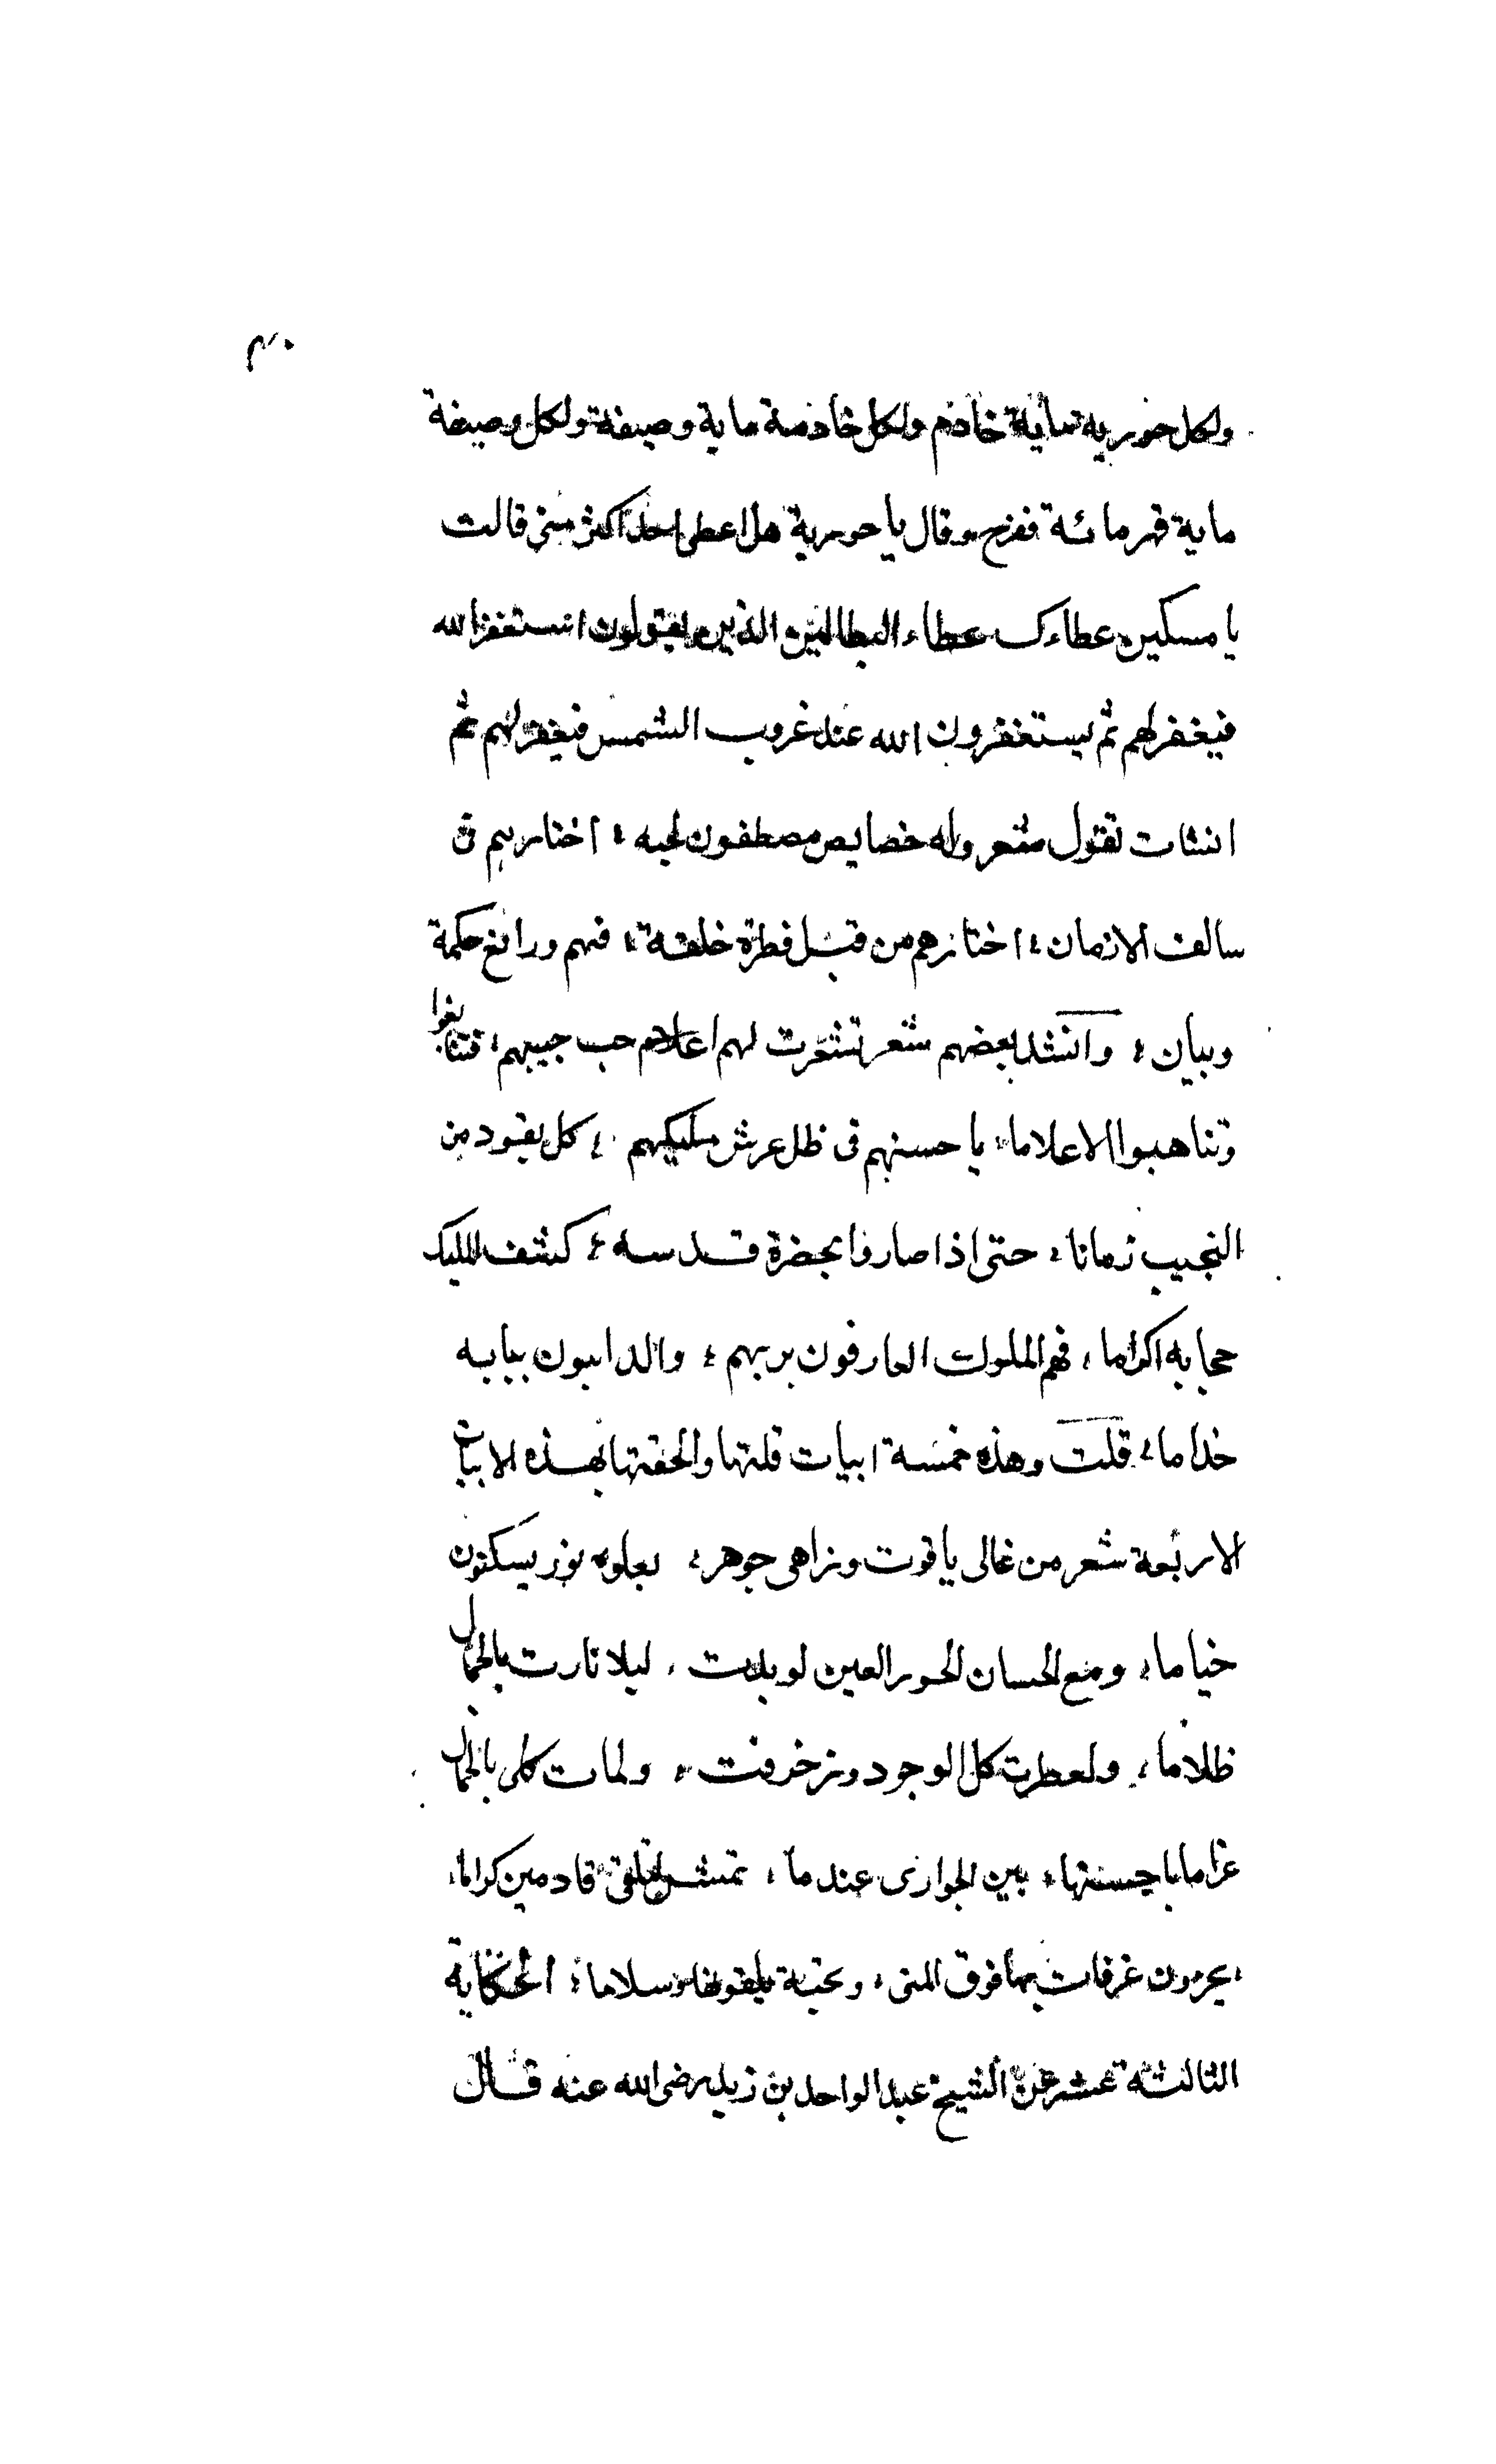 ٣٠
ولكل حورية ماية خادم ولكل خادمة ماية وصيفة ولكل وصيفة
ماية قهرمانة ففرح وقال يا حورية هل اعطى احد اكثر منى قالت
يا مسكين عطاءك عطاء البطالين الذين يقولون استغفر الله
فيغفر لهم ثم يستغفرون الله عند غروب الشمس فيغفر لهم ثم
انشات تقول شعر وله خصايص مصطفون لحبه ؛ اختارهم فى
سالف الازمان ؛ اختارهم من قبل فطرة خلقه ؛ فهم ودايع حكمة
وبيان ؛ وانشد بعضهم شعر نشرت لهم اعلام حب حبيبهم ؛ فتتابعوا
وتناهبوا الاعلاما ؛ يا حسنهم فى ظل عرش مليكهم ؛ كل يقود من
النجيب زمانا ؛ حتى اذا صاروا بحضرة قدسه ؛ كشف المليك
حجابه اكراما ؛ فهم الملوك العارفون بربهم ؛ والدايبون ببابه
خداما ؛ قلت وهذه خمسة ابيات قلتها والحقتها بهذه الابيات
الاربعة شعر من غالى ياقوت وزاهى جوهر ؛ يعلوه نور يسكنون
خياما ؛ ومع الحسان الحور العين لو بدت ؛ ليلا نارت بالجمال
ظلاما ؛ ولعطرت كل الوجود وزخرفت ؛ ولمات كل بالجمال
غراما يا حسنها ؛ بين الجوارى عندما ؛ تمشى لتلقى قادمين كراما ؛
يجزون غرفات بها فوق المنى ؛ وتحية يلقونها وسلاما ؛ الحكاية
الثالثة عشر عن الشيخ عبد الواحد بن زيد رضى الله عنه قال